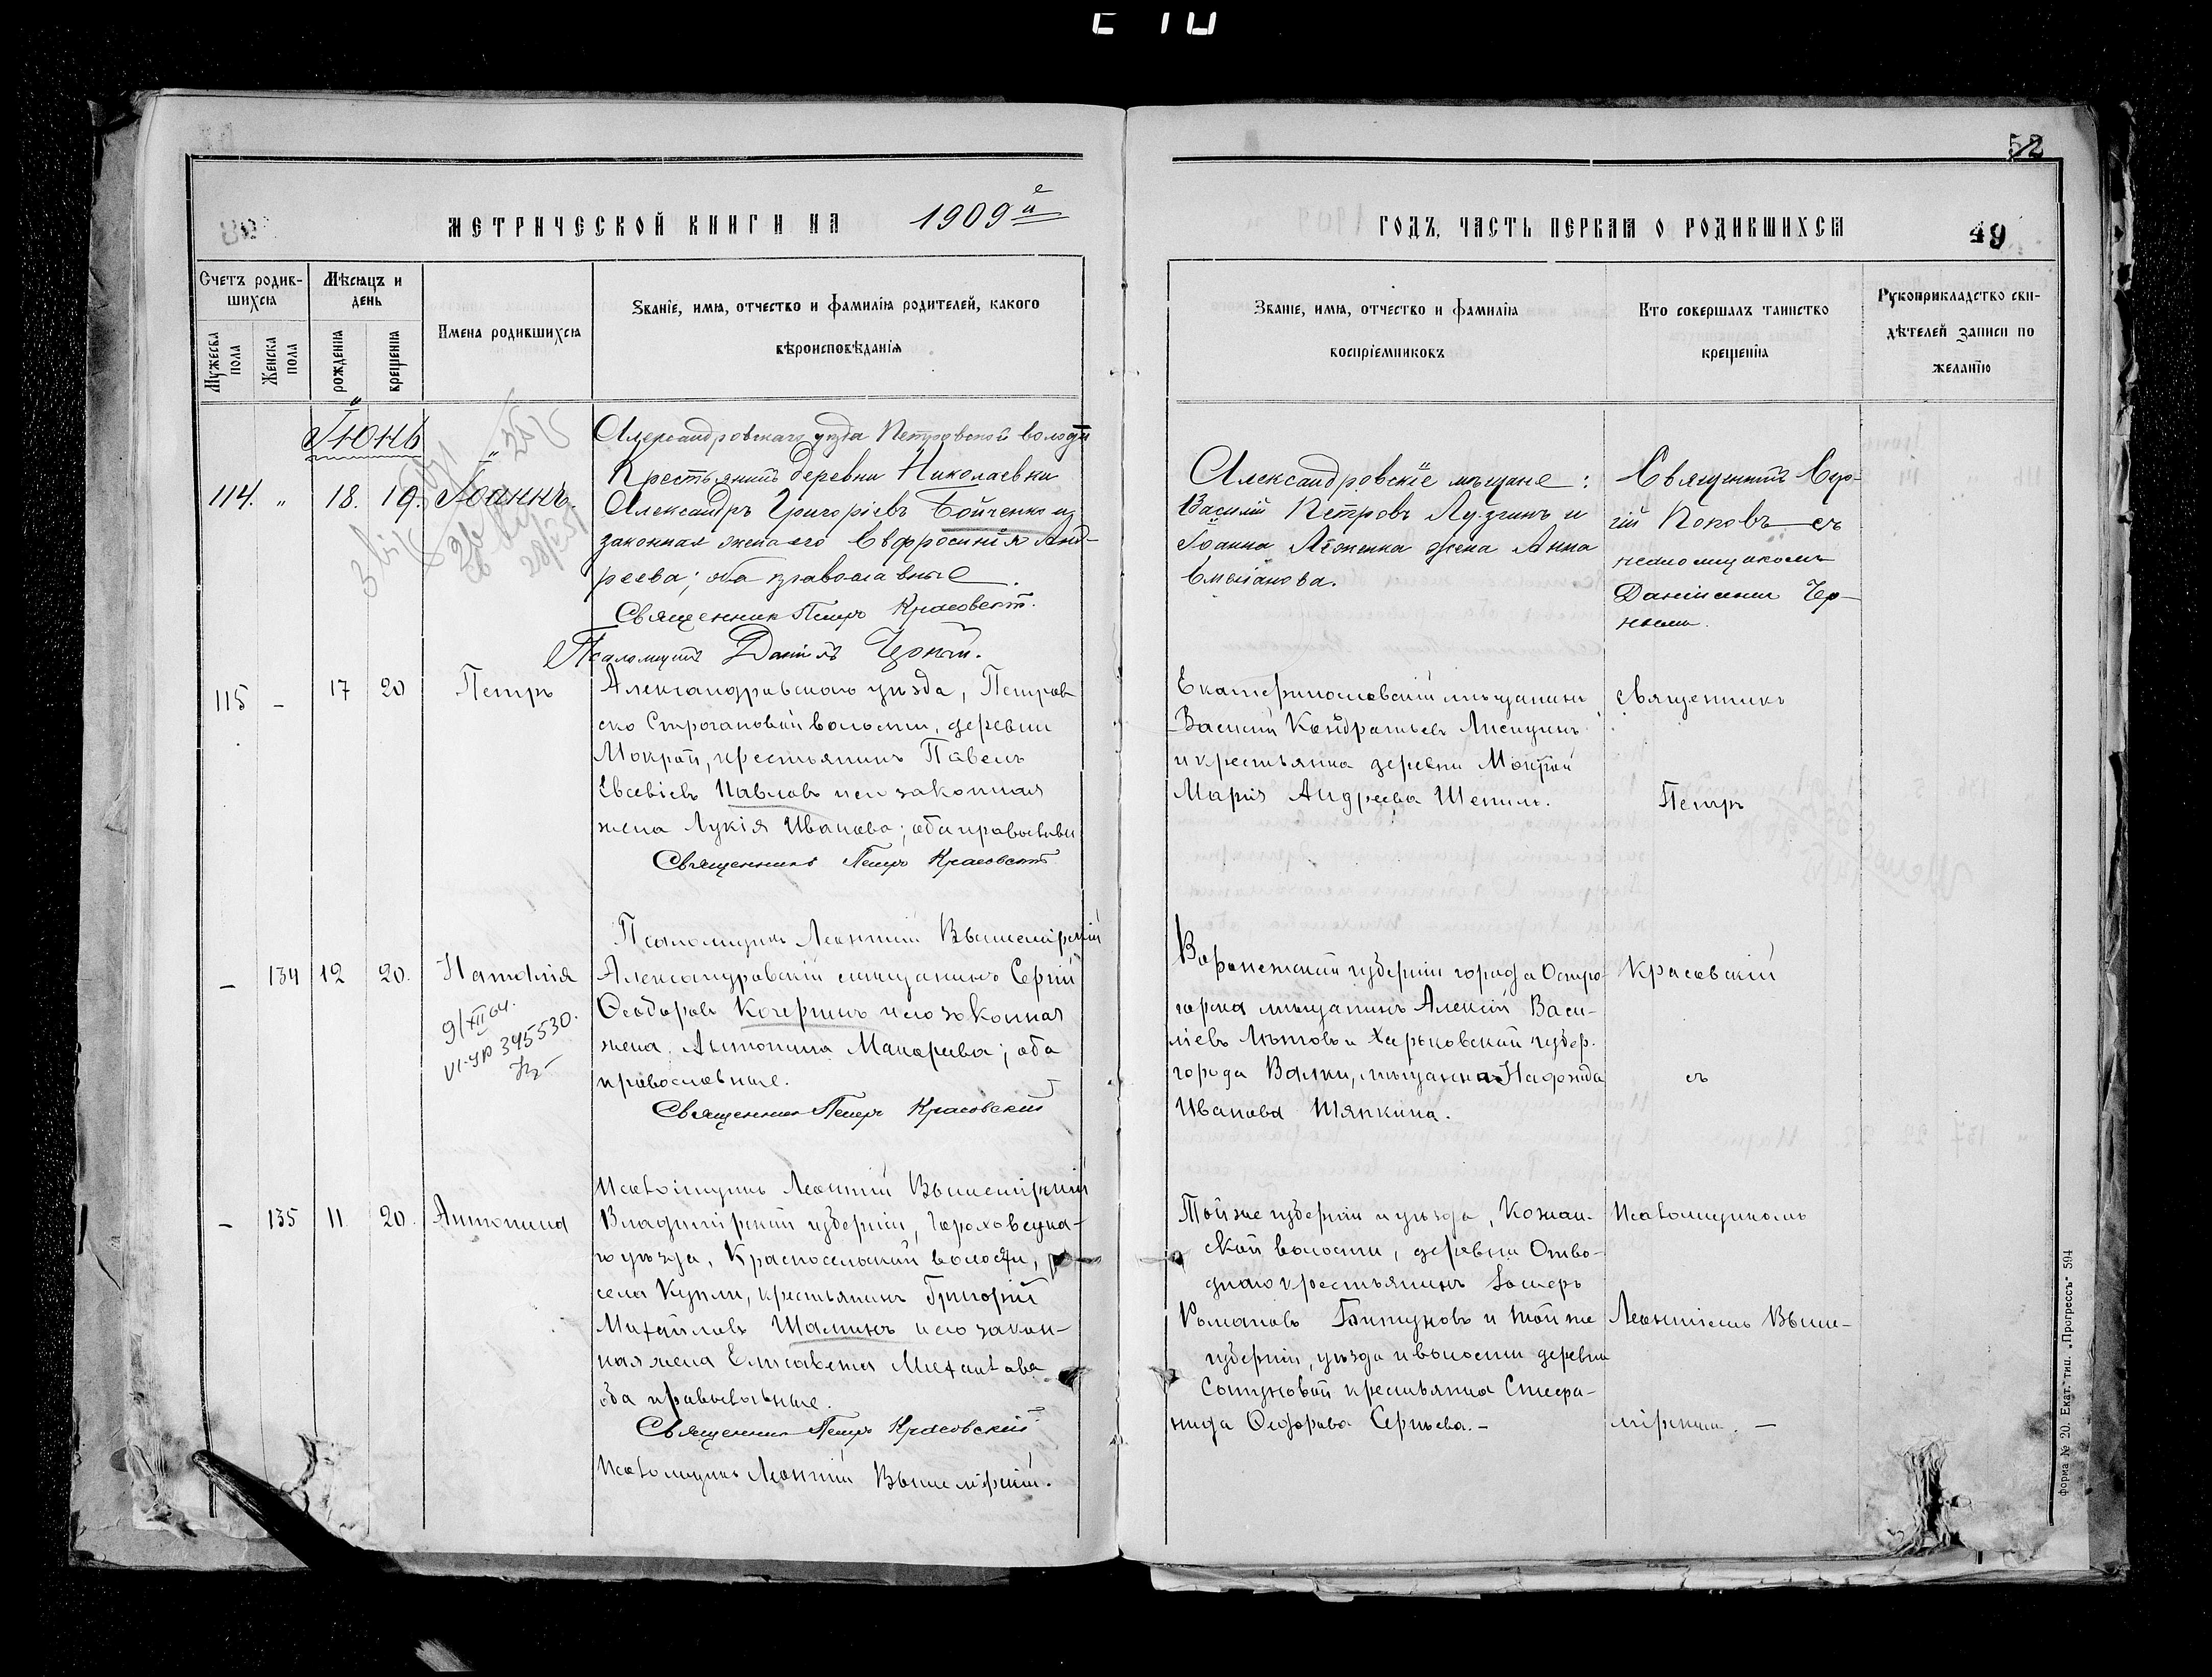 52
МЕТРИЧЕСКОЙ КНИГИ НА 1909й
ГОДЪ, ЧАСТЬ ПЕРВАЯ О РОДИВШИХСЯ 49
Счетъ родив-
шихся
Мѣсяцъ и
день
Мужеска
пола
Женска
пола
рожденія
крещенія
Имена родившихся
Званіе, имя, отчество и фамилія родителей, какого
вѣроисповѣданія
Званіе, имя, отчество и фамилія
воспріемниковъ
Кто совершалъ таинство
крещенія
Рукоприкладство сви-
дѣтелей записи по
желанію
Іюнь
114. " 18. 19. Іоаннъ.
Александровскаго уѣзда Петровской волости
Крестьянинъ деревни Николаевки
Александръ Григоріевъ Бойченко и
законная жена его Евфросинія Анд-
реева; оба православные.
Священникъ Петръ Красовскій.
Псаломщикъ Даніилъ Черный.
Александровскіе мѣщане:
Василій Петровъ Лузгинъ и
Іоанна жена Анна
Священникъ Сер-
гій Поповъ съ
псаломщикомъ
Даніиломъ Чер-
нымъ.
115 - 17 20 Петръ
Александровскаго уѣзда, Петров
ско Строгановой волости, деревни
Мокрой, крестьянинъ Павелъ
Евсевіевъ Павловъ и его законная
жена Лукія Иванова; оба православн
Священникъ Петръ Красовскій
Псаломщикъ Леонтій Вышемірскій
Екатеринославскій мѣщанинъ
Василій Кондратьевъ Лисицинъ
и крестьянка деревни Мокрой
Марія Андреева Шепиль.
Священникъ
Петръ
- 134 12 20. Наталія
9/XII 64.
VI-ЯР 345530.
Александровскій мѣщанинъ Сергій
Ѳеодоровъ Кочергинъ и его законная
жена Антонина Макарьева; оба
православные.
Священникъ Петръ Красовскій
Псаломщикъ Леонтій Вышемірскій
Воронежской губерніи города Остро-
горска мѣщанинъ Алексій Васи-
ліевъ Лѣтовъ и Харьковской губер.
города Валки, мѣщанка Надежда
Иванова Шяпкина.
Красовскій
съ
- 135 11. 20. Антонина
Владимірской губерніи, Гороховецка-
го уѣзда, Красносельской волости,
села Купли, крестьянинъ Григорій
Михайловъ Шаминъ и его закон-
ная жена Елисавета Михайлова
оба православные.
Священникъ Петръ Красовскій
Псаломщикъ Леонтій Вышемірскій.
Той же губерніи и уѣзда, Кожан-
ской волости, деревни Отво-
днаго крестьянинъ
Романовъ Битуновъ и той же
губерніи, уѣзда и волости деревни
крестьянка Стефа-
нида Ѳедорова Сергѣева.-
Псаломщикомъ
Леонтіемъ Выше-
мірскимъ. -
Форма № 20. Екат. тип. „Прогрессъ" 594